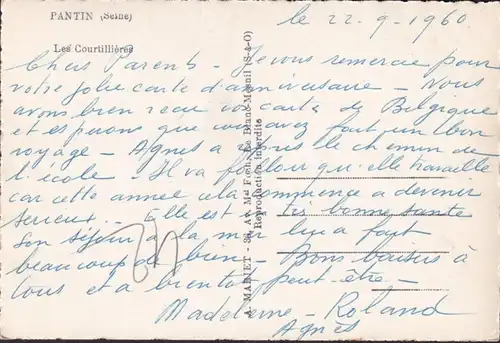 PANTIN (Seine)
Les Courtillières
le 22-9-1960
Chers Parents - Je vous remercie pour
votre jolie carte d'anniversaire - Nous
avons bien reçu vos carte de Belgique
et esperons que vous avez fait un bon
voyage - Agnes a repris le chemin de
l'école Il va falloir qu'elle travaille
car cette année cela commence a devenir
serieux - Elle est en tres bonne sante
son séjour a la mer lui a fait
beaucoup de bien - Bons baisers à
tous et a bientot peut-être -
Madeleine - Roland
Agnes
A. MAINET - 38, Av. Mal Foch, Le Blanc-Mesnil (S-&-O)
Reproduction interdite